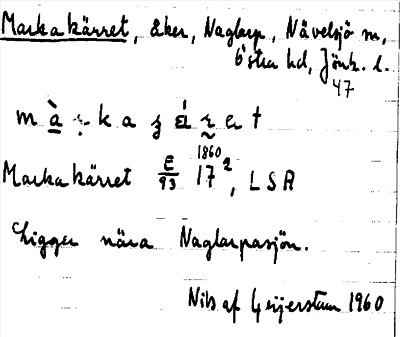 Markakärret, åker, Naglarp, Nävelsjö sn,
Östra hd, Jönk. l.
47
1860
Markakärret E/93 17², LSA
Ligger nära Naglarpasjön.
Nils af Geijerstam 1960